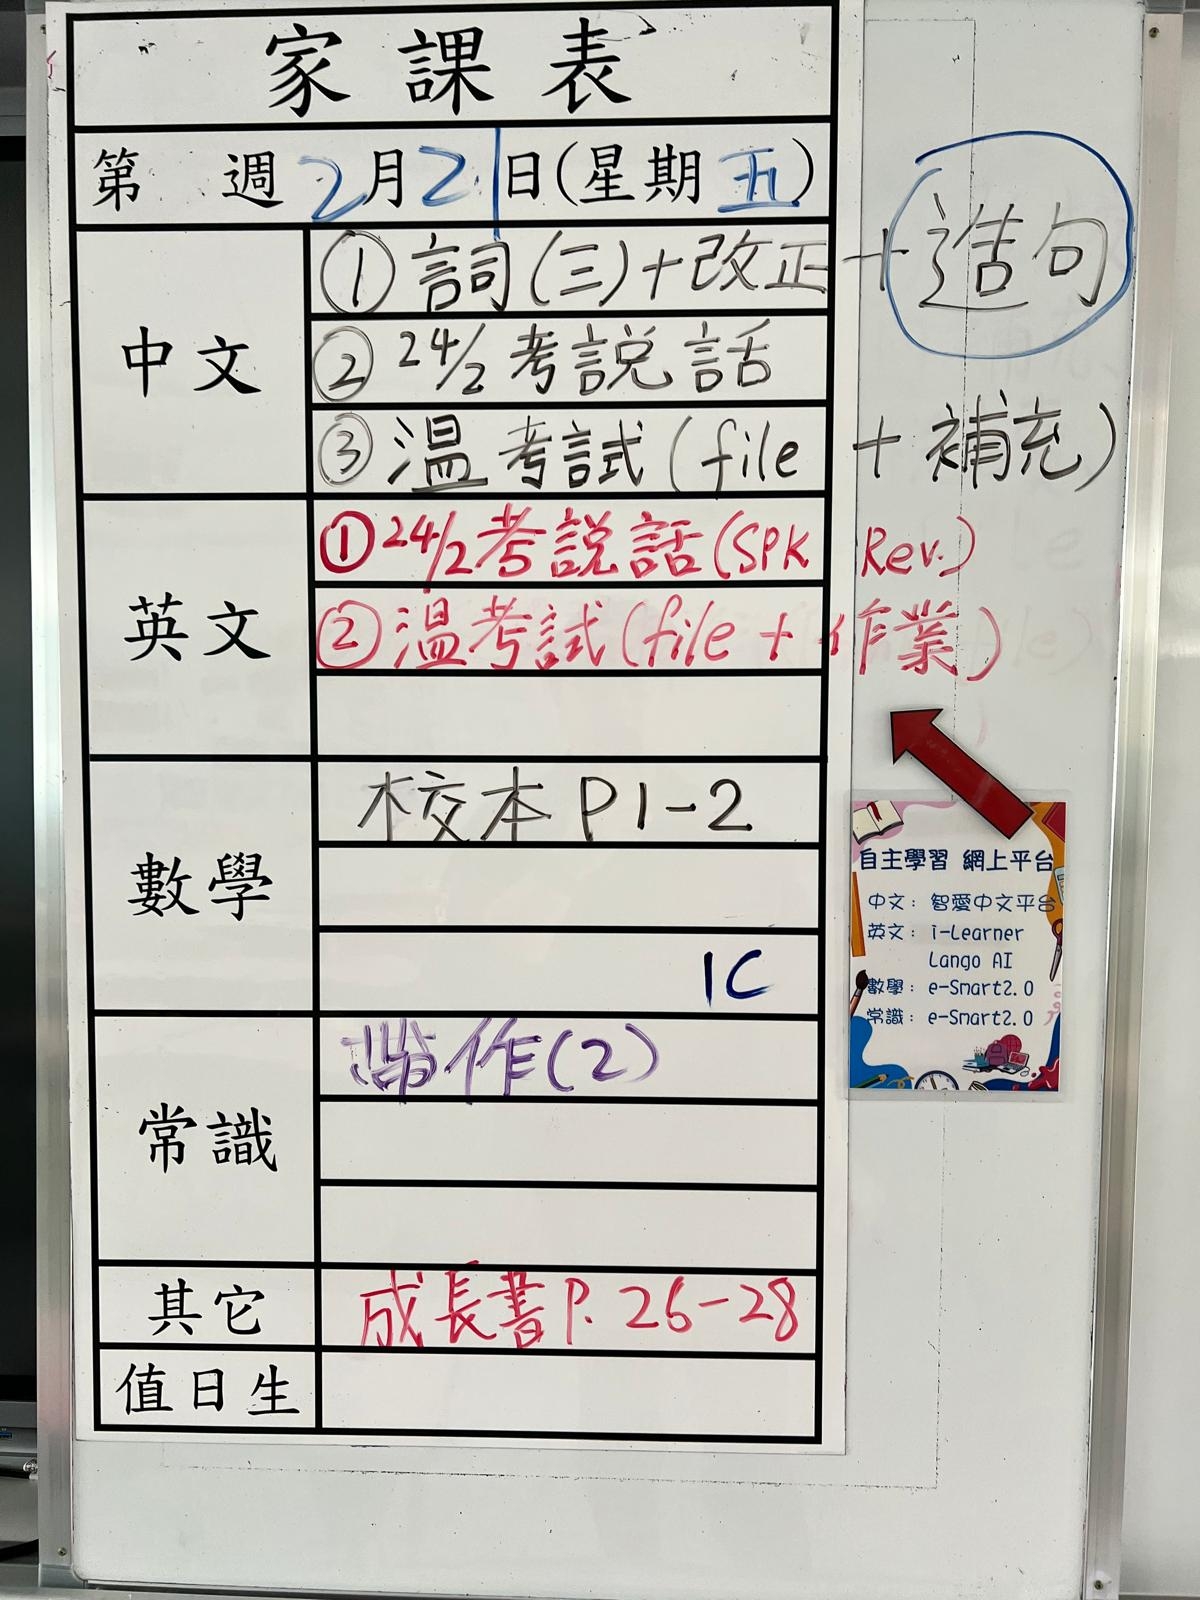 家課表
第 週 2月21日(星期五)
中文
① 詞(三)+改正+造句
② 24/2 考説話
③ 溫考試(file + 補充)
英文
① 24/2 考説話(SPK Rev.)
② 溫考試(file + 作業)
數學
校本 P1-2
1C
常識
作(2)
其它
成長書 P. 26-28
值日生
自主學習 網上平台
中文：智愛中文平台
英文：i-Learner
Lango AI
數學：e-Smart2.0
常識：e-Smart2.0